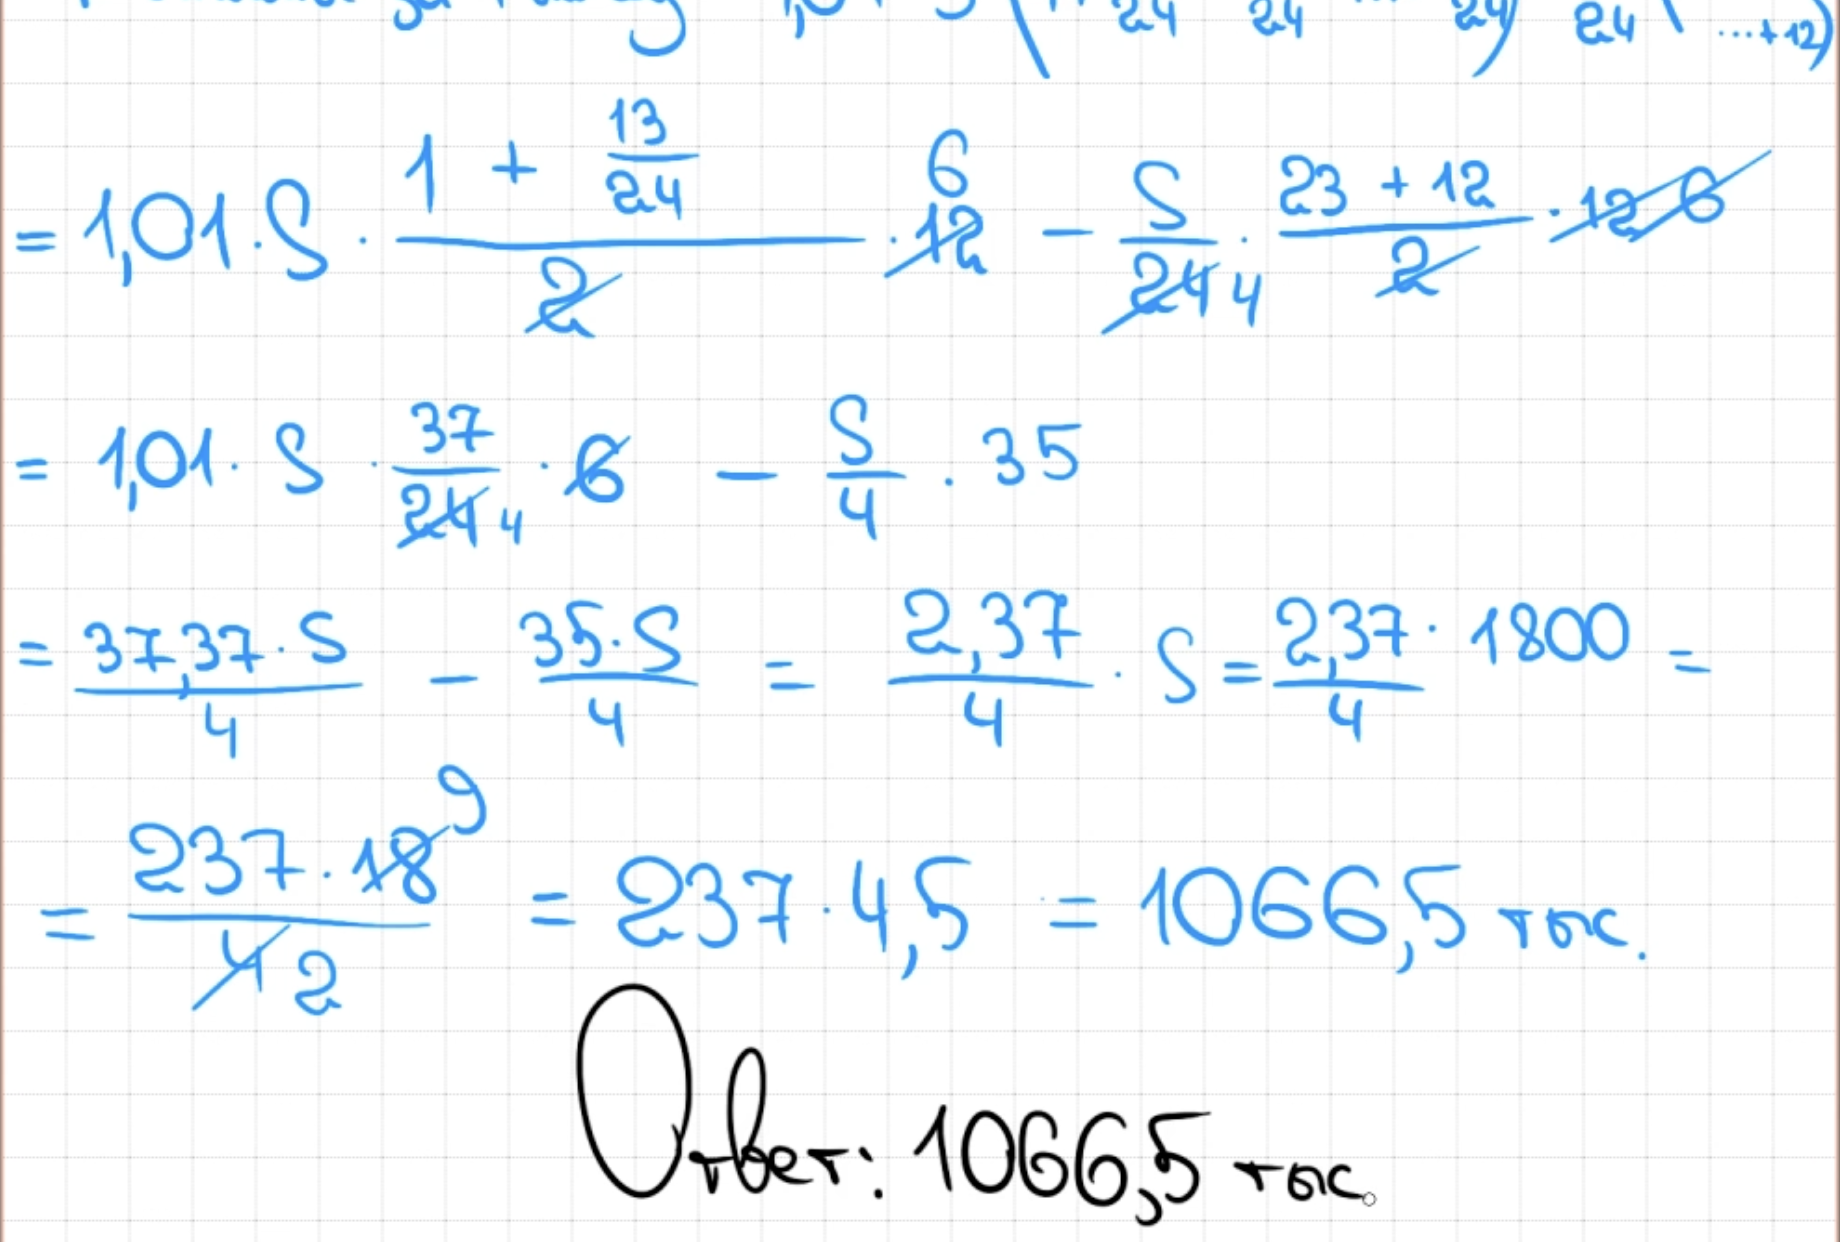 = 1,01 · S · (1 + 13/24)/2 · 12 6 − S/24 4 · (23 + 12)/2 · 12 6
= 1,01 · S · 37/24 4 · 6 − S/4 · 35
= 37,37 · S/4 − 35 · S/4 = 2,37/4 · S = 2,37 · 1800/4 =
= 237 · 18 9/4 2 = 237 · 4,5 = 1066,5 тыс.
Ответ: 1066,5 тыс.